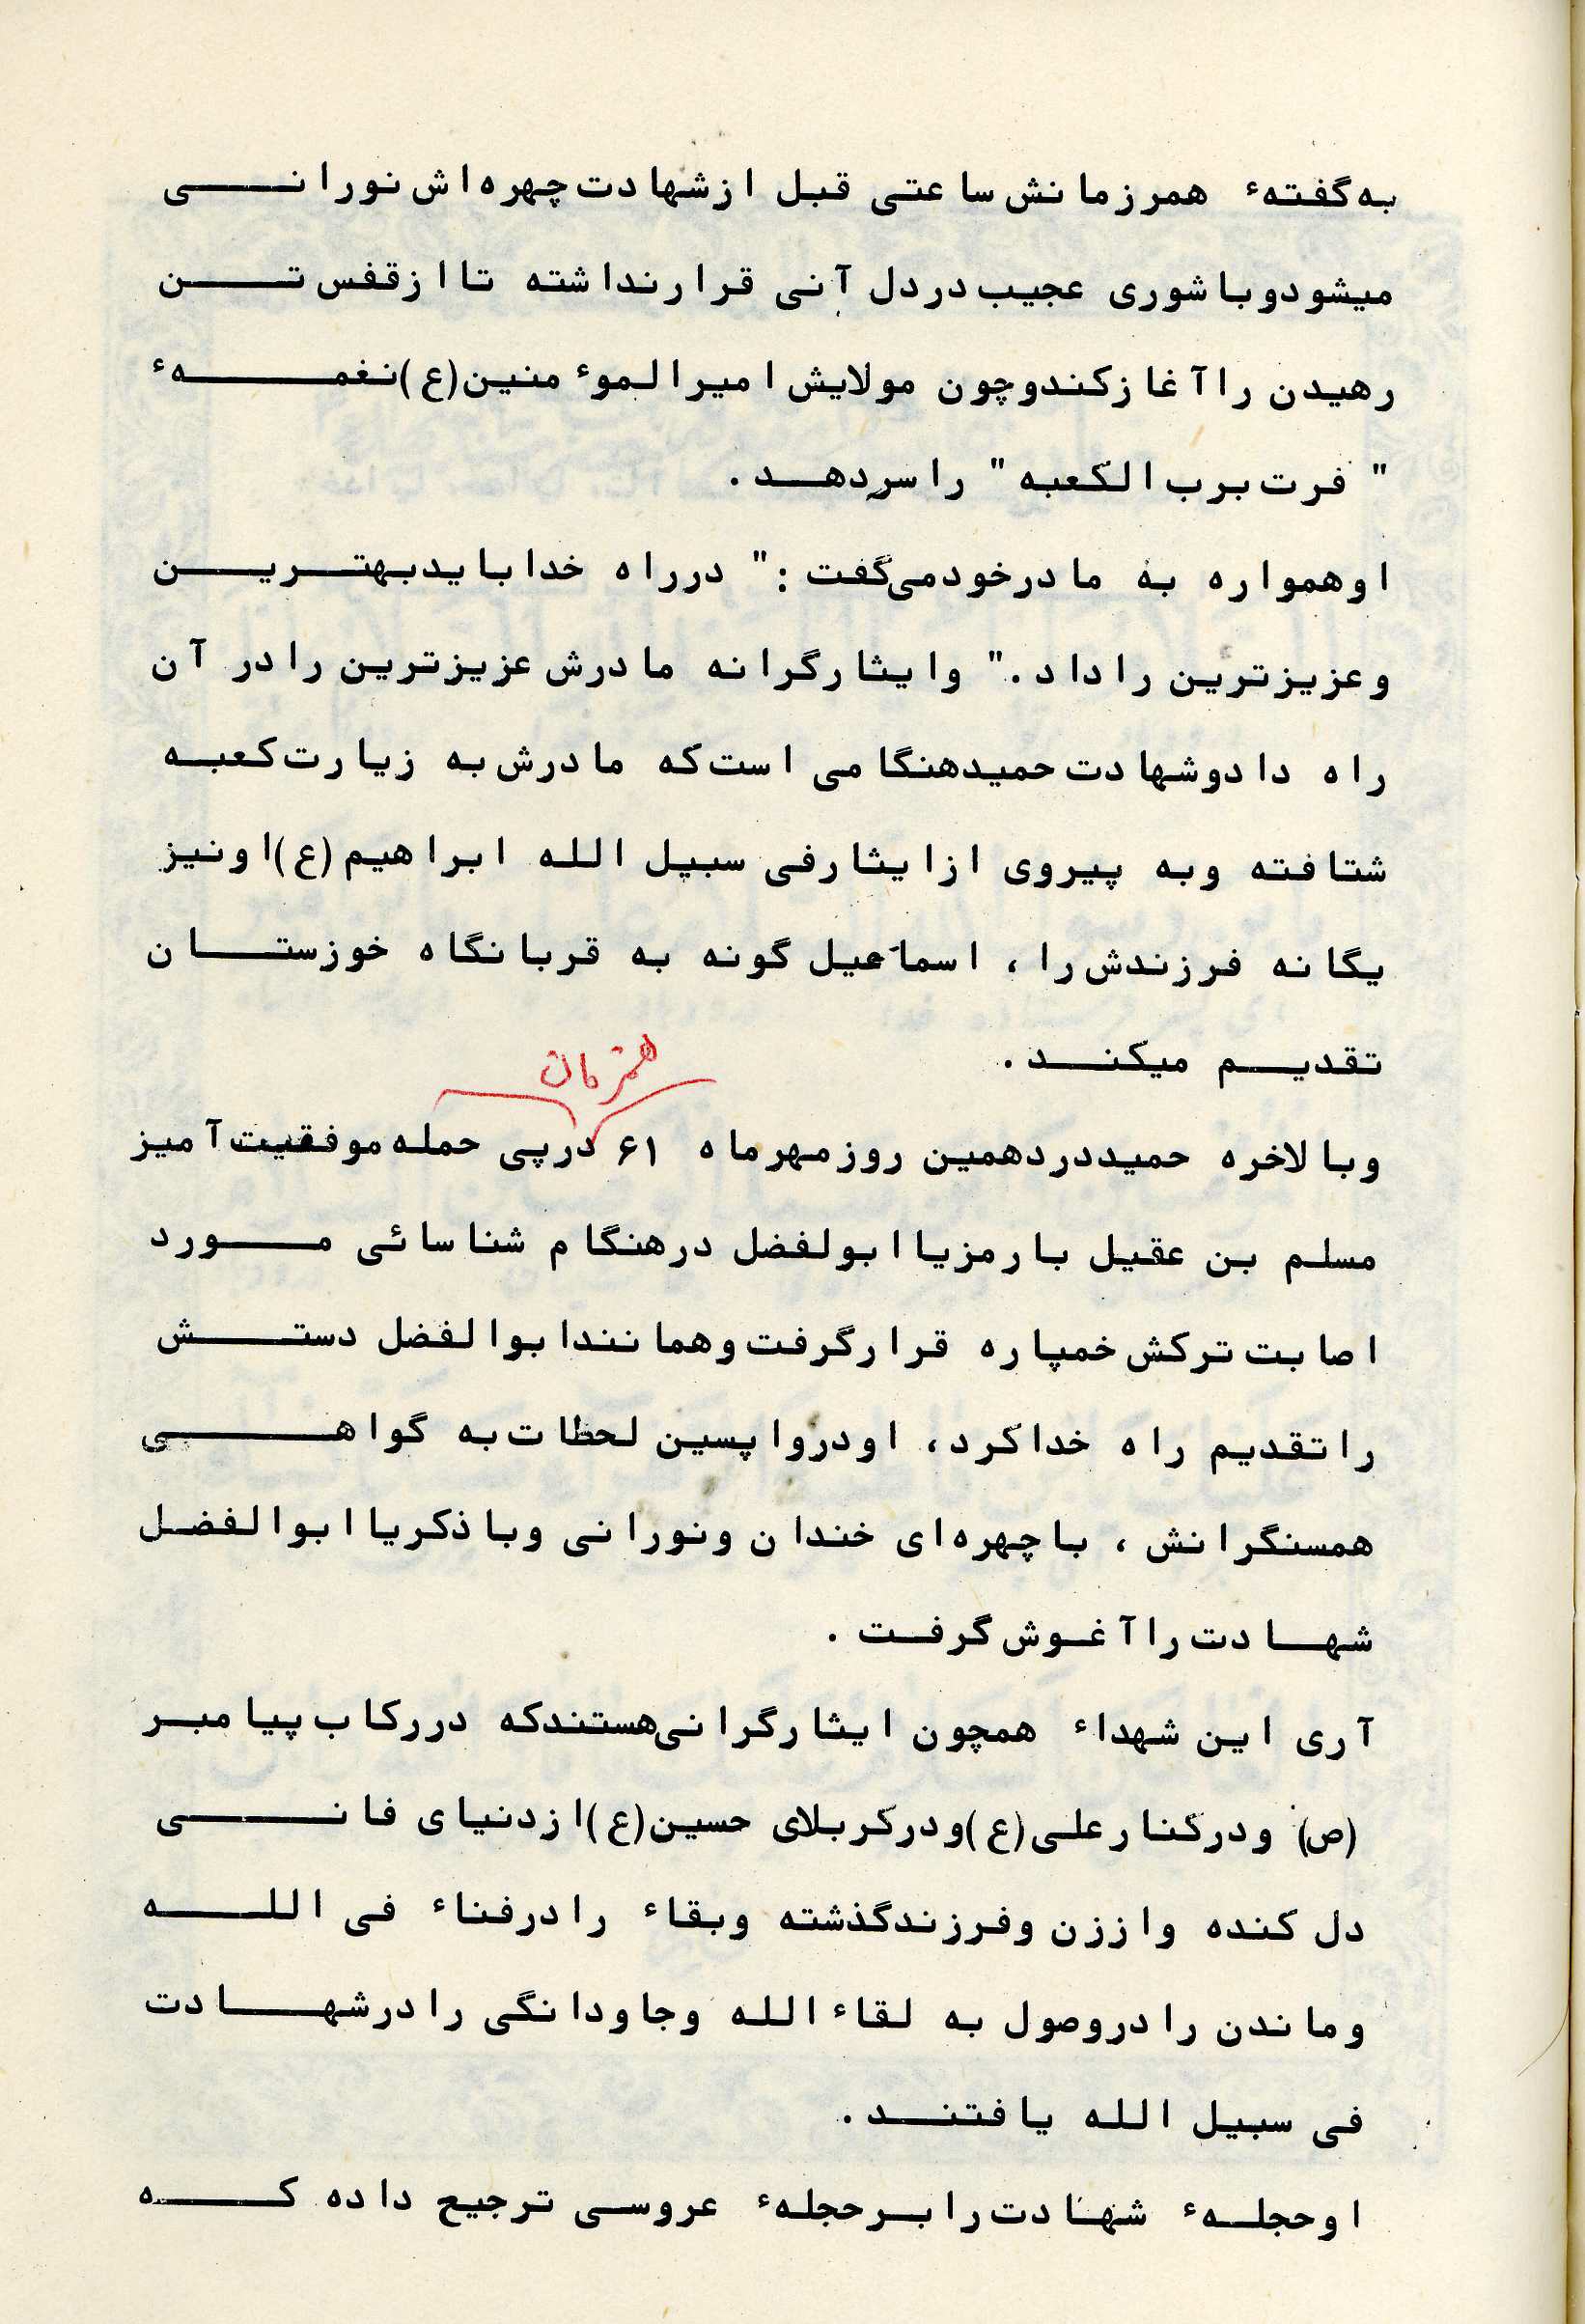 به گفتهٔ همرزمانش ساعتی قبل از شهادت چهره‌اش نورانی
میشود و با شوری عجیب در دل آنی قرار نداشته تا از قفس تن
رهیدن را آغاز کند و چون مولایش امیرالموٴمنین (ع) نغمهٔ
" فرت برب الکعبه " را سر دهد .
او همواره به مادر خود می‌گفت : " در راه خدا باید بهترین
و عزیزترین را داد . " و ایثارگرانه مادرش عزیزترین را در آن
راه داد و شهادت حمید هنگامی است که مادرش به زیارت کعبه
شتافته و به پیروی از ایثار فی سبیل الله ابراهیم (ع) او نیز
یگانه فرزندش را ، اسماعیل گونه به قربانگاه خوزستان
تقدیم میکند .
همزمان
و بالاخره حمید در دهمین روز مهرماه ۶۱ در پی حمله موفقیت آمیز
مسلم بن عقیل با رمز یا ابولفضل در هنگام شناسائی مورد
اصابت ترکش خمپاره قرار گرفت و همانند ابوالفضل دستش
را تقدیم راه خدا کرد ، او در واپسین لحظات به گواهی
همسنگرانش ، با چهره‌ای خندان و نورانی و با ذکر یا ابوالفضل
شهادت را آغوش گرفت .
آری این شهداء همچون ایثارگرانی هستند که در رکاب پیامبر
(ص) و در کنار علی (ع) و در کربلای حسین (ع) از دنیای فانی
دل کنده و اززن و فرزند گذشته و بقاء را در فناء فی الله
و ماندن را در وصول به لقاء الله و جاودانگی را در شهادت
فی سبیل الله یافتند .
او حجلهٔ شهادت را بر حجلهٔ عروسی ترجیح داده که